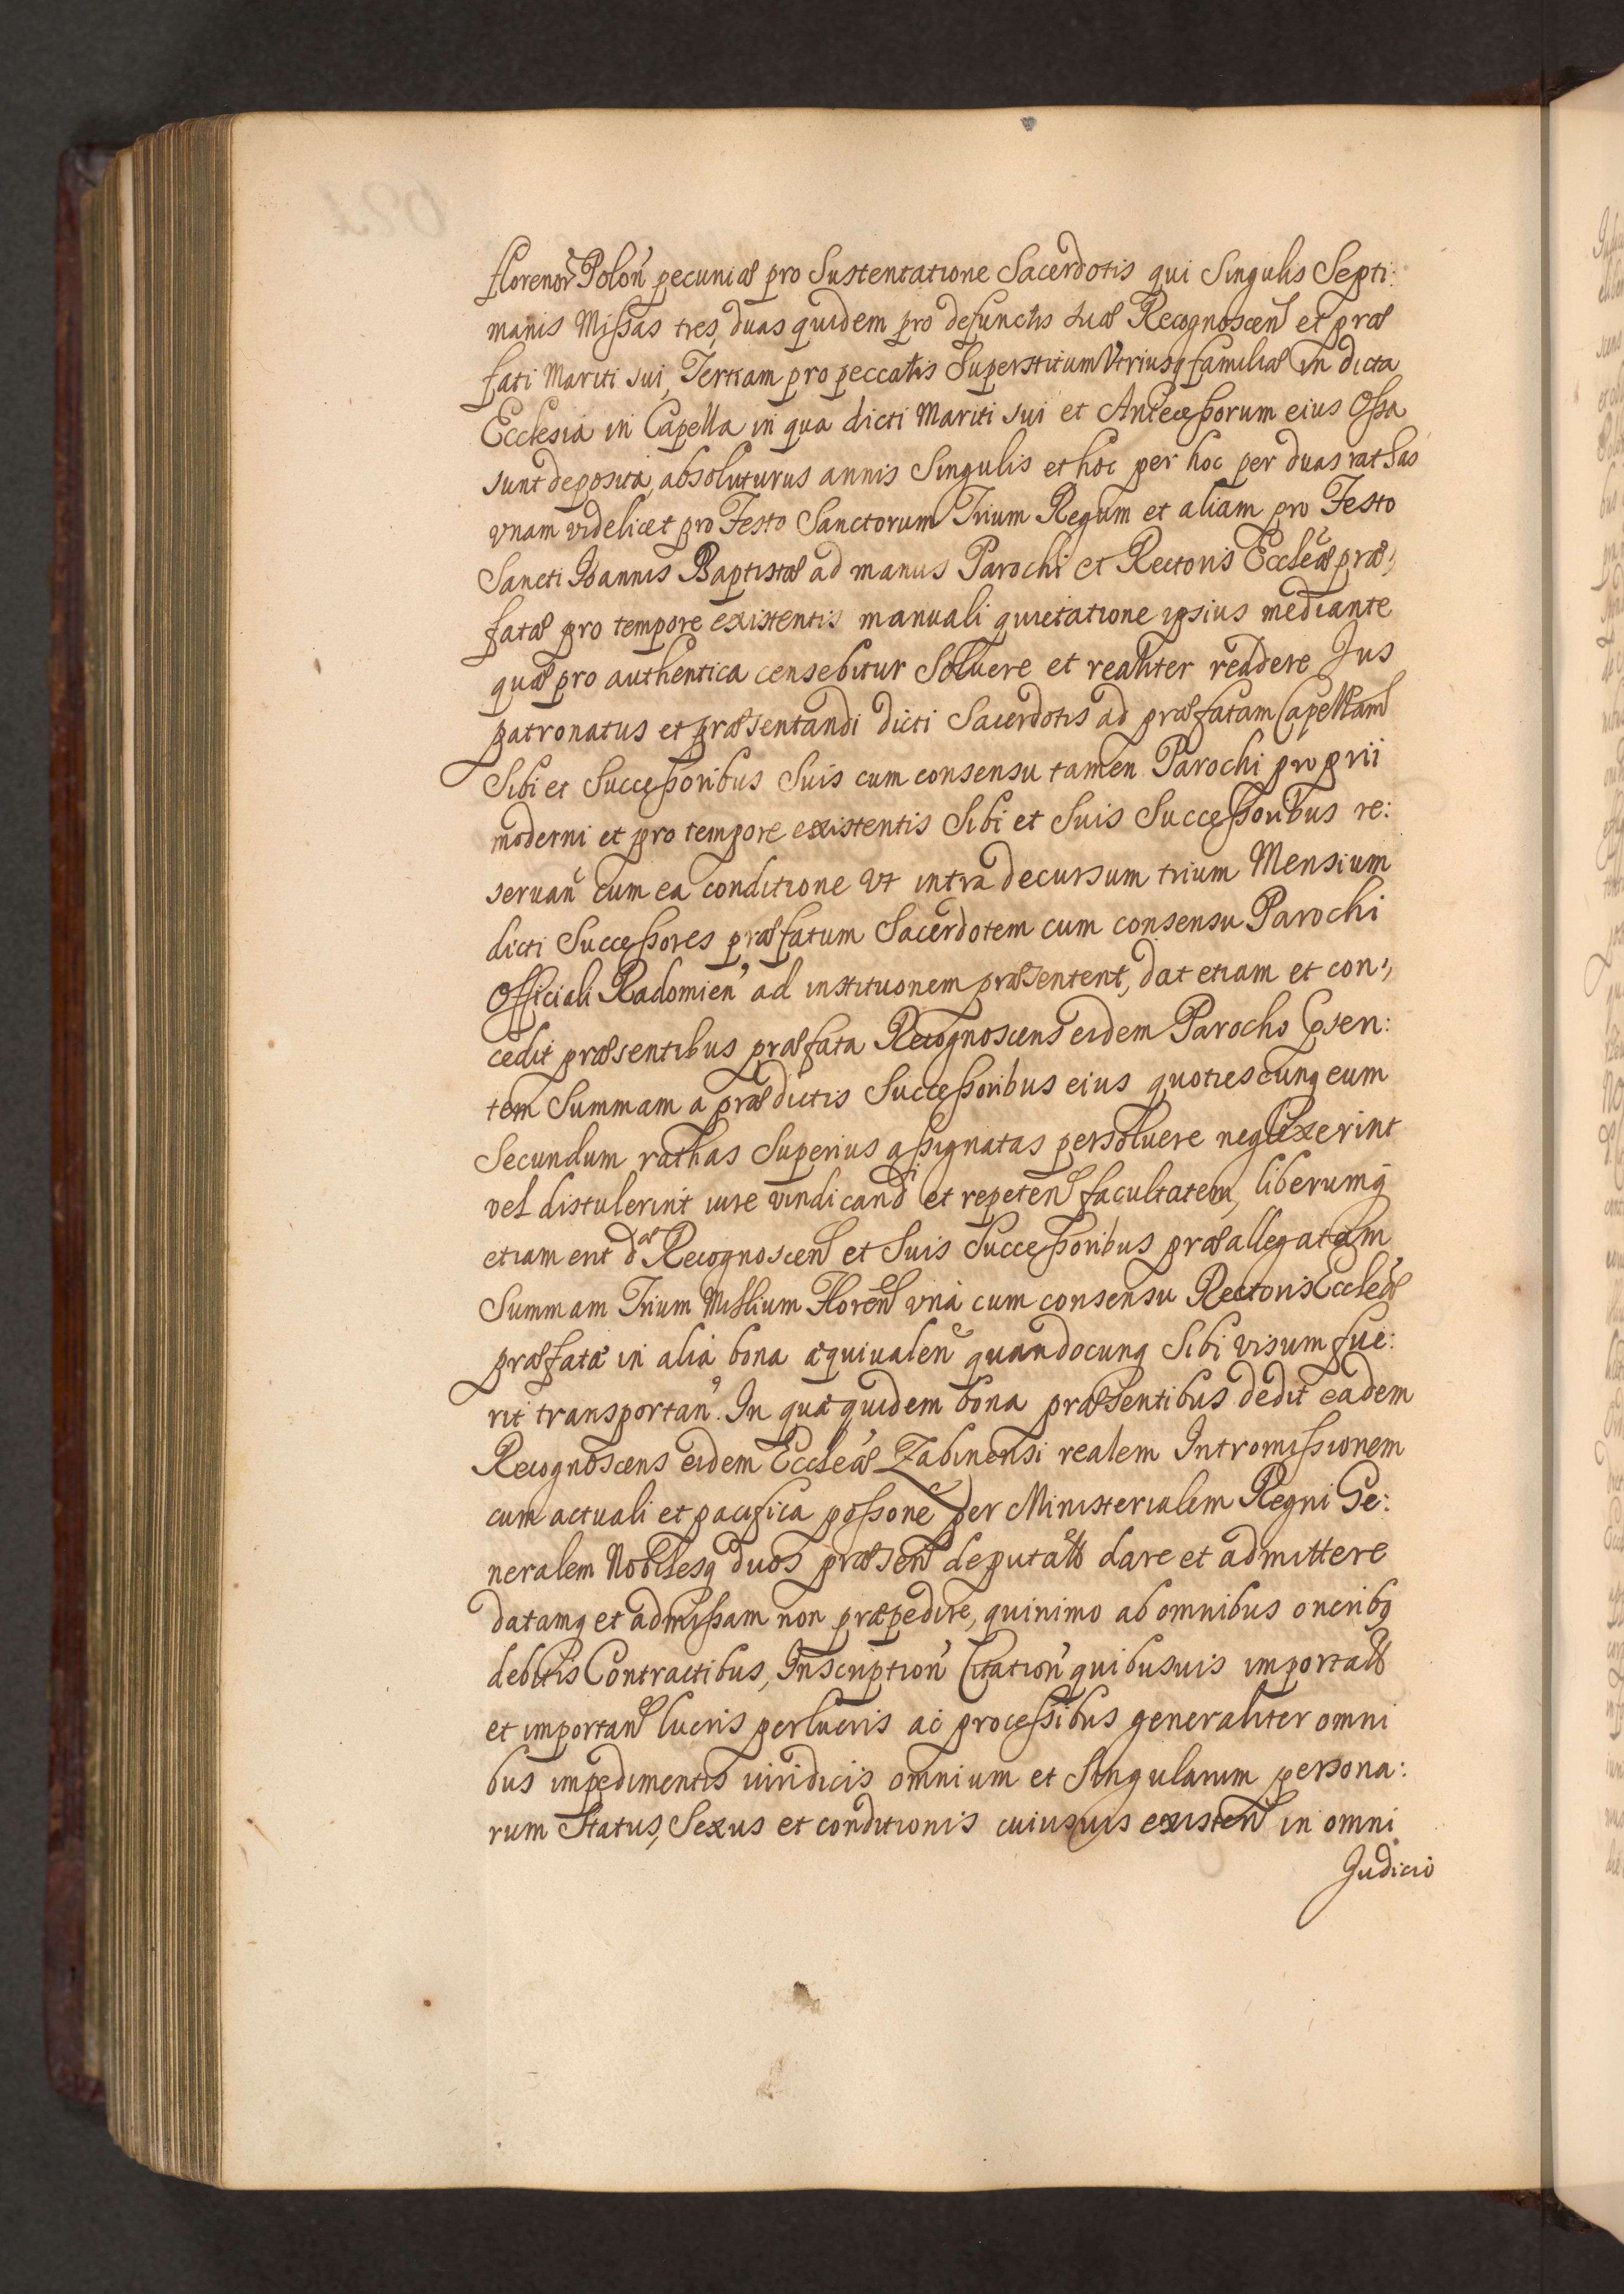 florenor̃ Polon̄ pecuniæ pro Sustentatione Sacerdotis qui Singulis Septi:
manis Missas tres, duas quidem pro defunctis suæ Recognoscen̄ et præ
fati Mariti sui, Tertiam pro peccatis Superstitum Vtriusq familiæ in dicta
Ecclesia in Capella in qua dicti Mariti sui et Antecessorum eius Ossa
sunt deposita, absoluturus annis Singulis et hoc per hoc per duas rathas
vnam videlicet pro Festo Sanctorum Trium Regum et aliam pro Festo
Sancti Ioannis Baptistæ ad manus Parochi et Rectoris Eccleæ præ,
fatæ pro tempore existentis manuali quietatione ipsius mediante
quæ pro authentica censebitur Soluere et realiter reddere Jus
patronatus et præsentandi dicti Sacerdotis ad præfatam Capellam
Sibi et Successoribus Suis cum consensu tamen Parochi proprii
moderni et pro tempore existentis Sibi et Suis Successoribus re:
seruan̄ cum ea conditione Vt intra decursum trium Mensium
dicti Successores præfatum Sacerdotem cum consensu Parochi
Officiali Radomien̄ ad institutionem præsentent, dat etiam et con,
cedit præsentibus præfata Recognoscens eidem Parocho p̄sen:
tem Summam a prædictis Successoribus eius quotiescunq eum
Secundum rathas Superius assignatas persoluere neglexerint
vel distulerint iure vindicandi et repeten̄ facultatem, liberumq
etiam erit dæ Recognoscen̄ et Suis Successoribus præallegatam
Summam Trium Millium Floren̄ vnà cum consensu Rectoris Eccleæ
præfatæ in alia bona æquiualen̄ quandocunq Sibi visum fue:
rit transportan̄. In quæ quidem bona præsentibus dedit eadem
Recognoscens eidem Eccleæ Zabinensi realem Intromissionem
cum actuali et pacifica possone per Ministerialem Regni Ge:
neralem Nobilesq duos præsen̄ deputatt dare et admittere
datamq et admissam non præpedire, quinimo ab omnibus oneribq
debitis Contractibus, Inscription̄ Citation̄ quibusuis importatt
et importan̄ lucris perlucris ac processibus generaliter omni
bus impedimentis iuridicis omnium et Singularum persona:
rum Status, Sexus et conditionis cuiusuis existen̄ in omni
Judicio